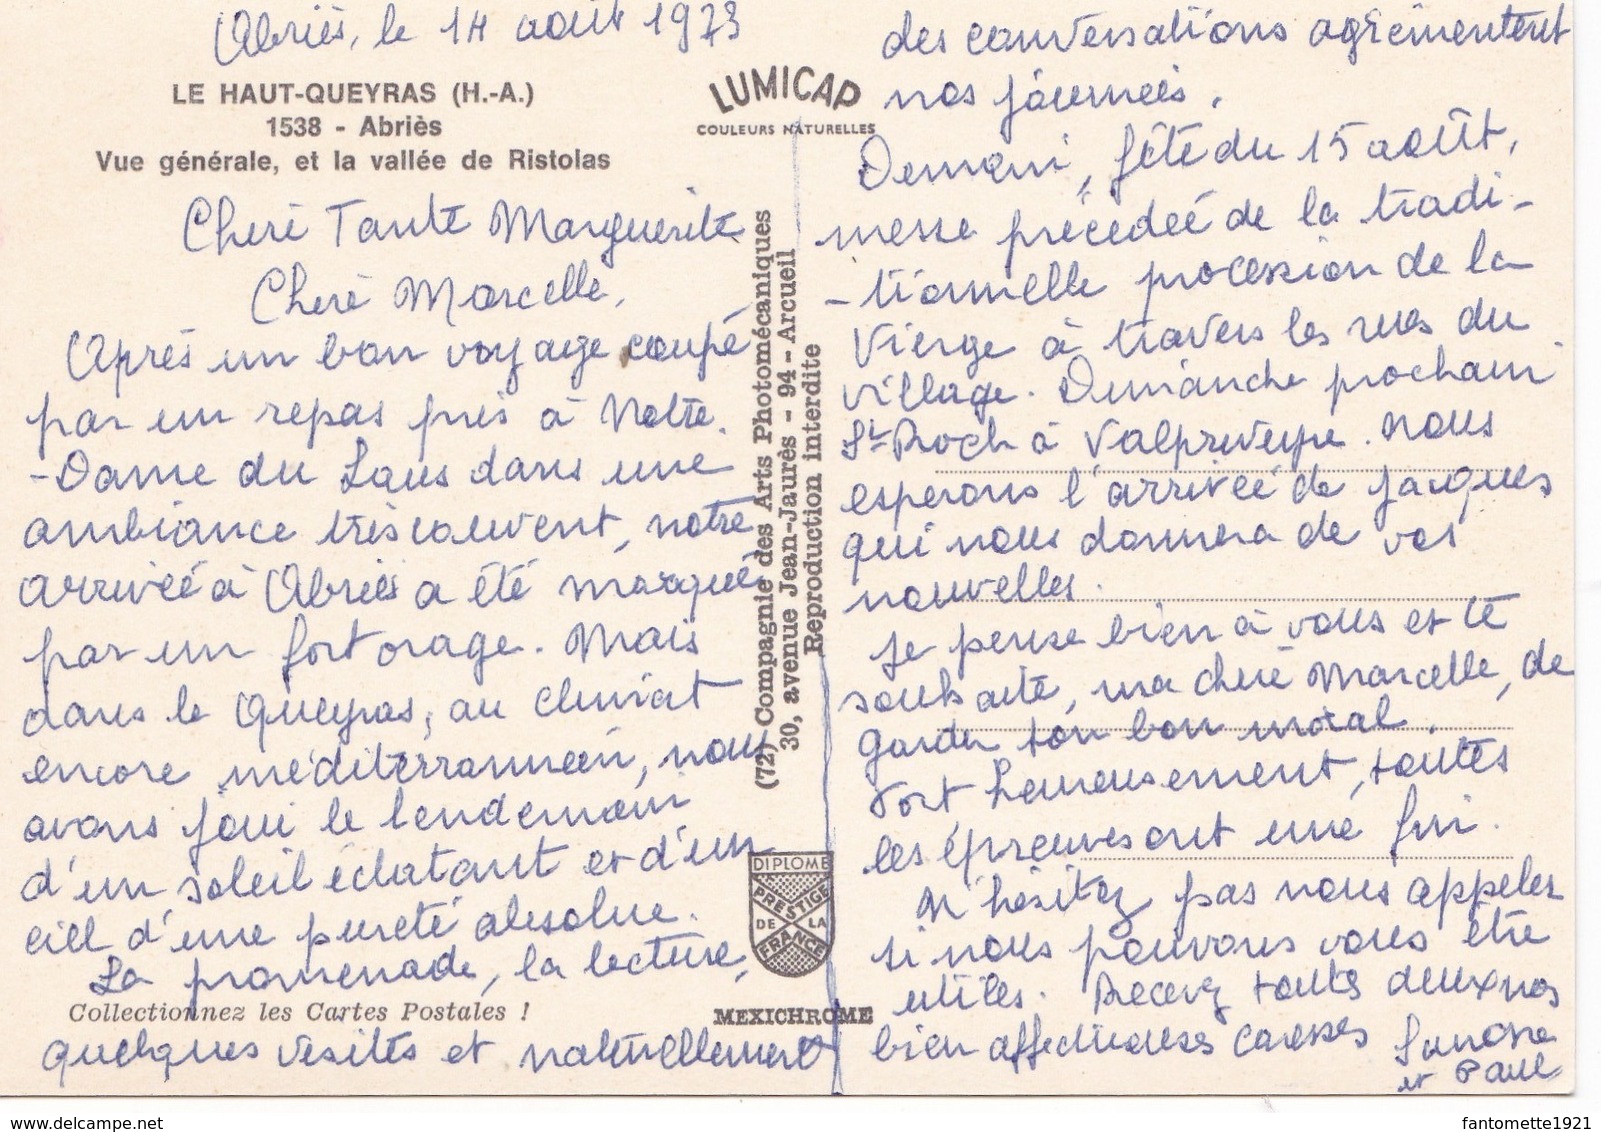 Abriès, le 14 août 1973
LE HAUT-QUEYRAS (H.-A.)
1538 - Abriès
Vue générale, et la vallée de Ristolas
Chère Tante Marguerite
Chère Marcelle,
Après un bon voyage coupé
par un repas près à Notre.
-Dame du Laus dans une
ambiance très couvent, notre
arrivée à Abriès a été marquée
par un fort orage. Mais
dans le Queyras, au climat
encore méditerranéen, nous
avons joui le lendemain
d'un soleil éclatant et d'un
ciel d'une pureté absolue.
La promenade, la lecture,
Collectionnez les Cartes Postales !
quelques visites et naturellement
LUMICAP
COULEURS NATURELLES
(72) Compagnie des Arts Photomécaniques
30, avenue Jean-Jaurès - 94 - Arcueil
Reproduction interdite
DIPLOME
PRESTIGE
DE LA
FRANCE
MEXICHROME
des conversations agrémentent
nos journées.
Demain, fête du 15 août,
messe précédée de la tradi-
-tionnelle procession de la
Vierge à travers les rues du
village. Dimanche prochain
St Roch à Valpreveyre. Nous
espérons l'arrivée de Jacques
qui nous donnera de vos
nouvelles.
Je pense bien à vous et te
souhaite, ma chère Marcelle, de
garder ton bon moral.
Fort heureusement, toutes
les épreuves ont une fin.
N'hésitez pas nous appeler
si nous pouvons vous être
utiles. Recevez toutes deux nos
bien affectueuses caresses
et Paul
www.delcampe.net
fantomette1921